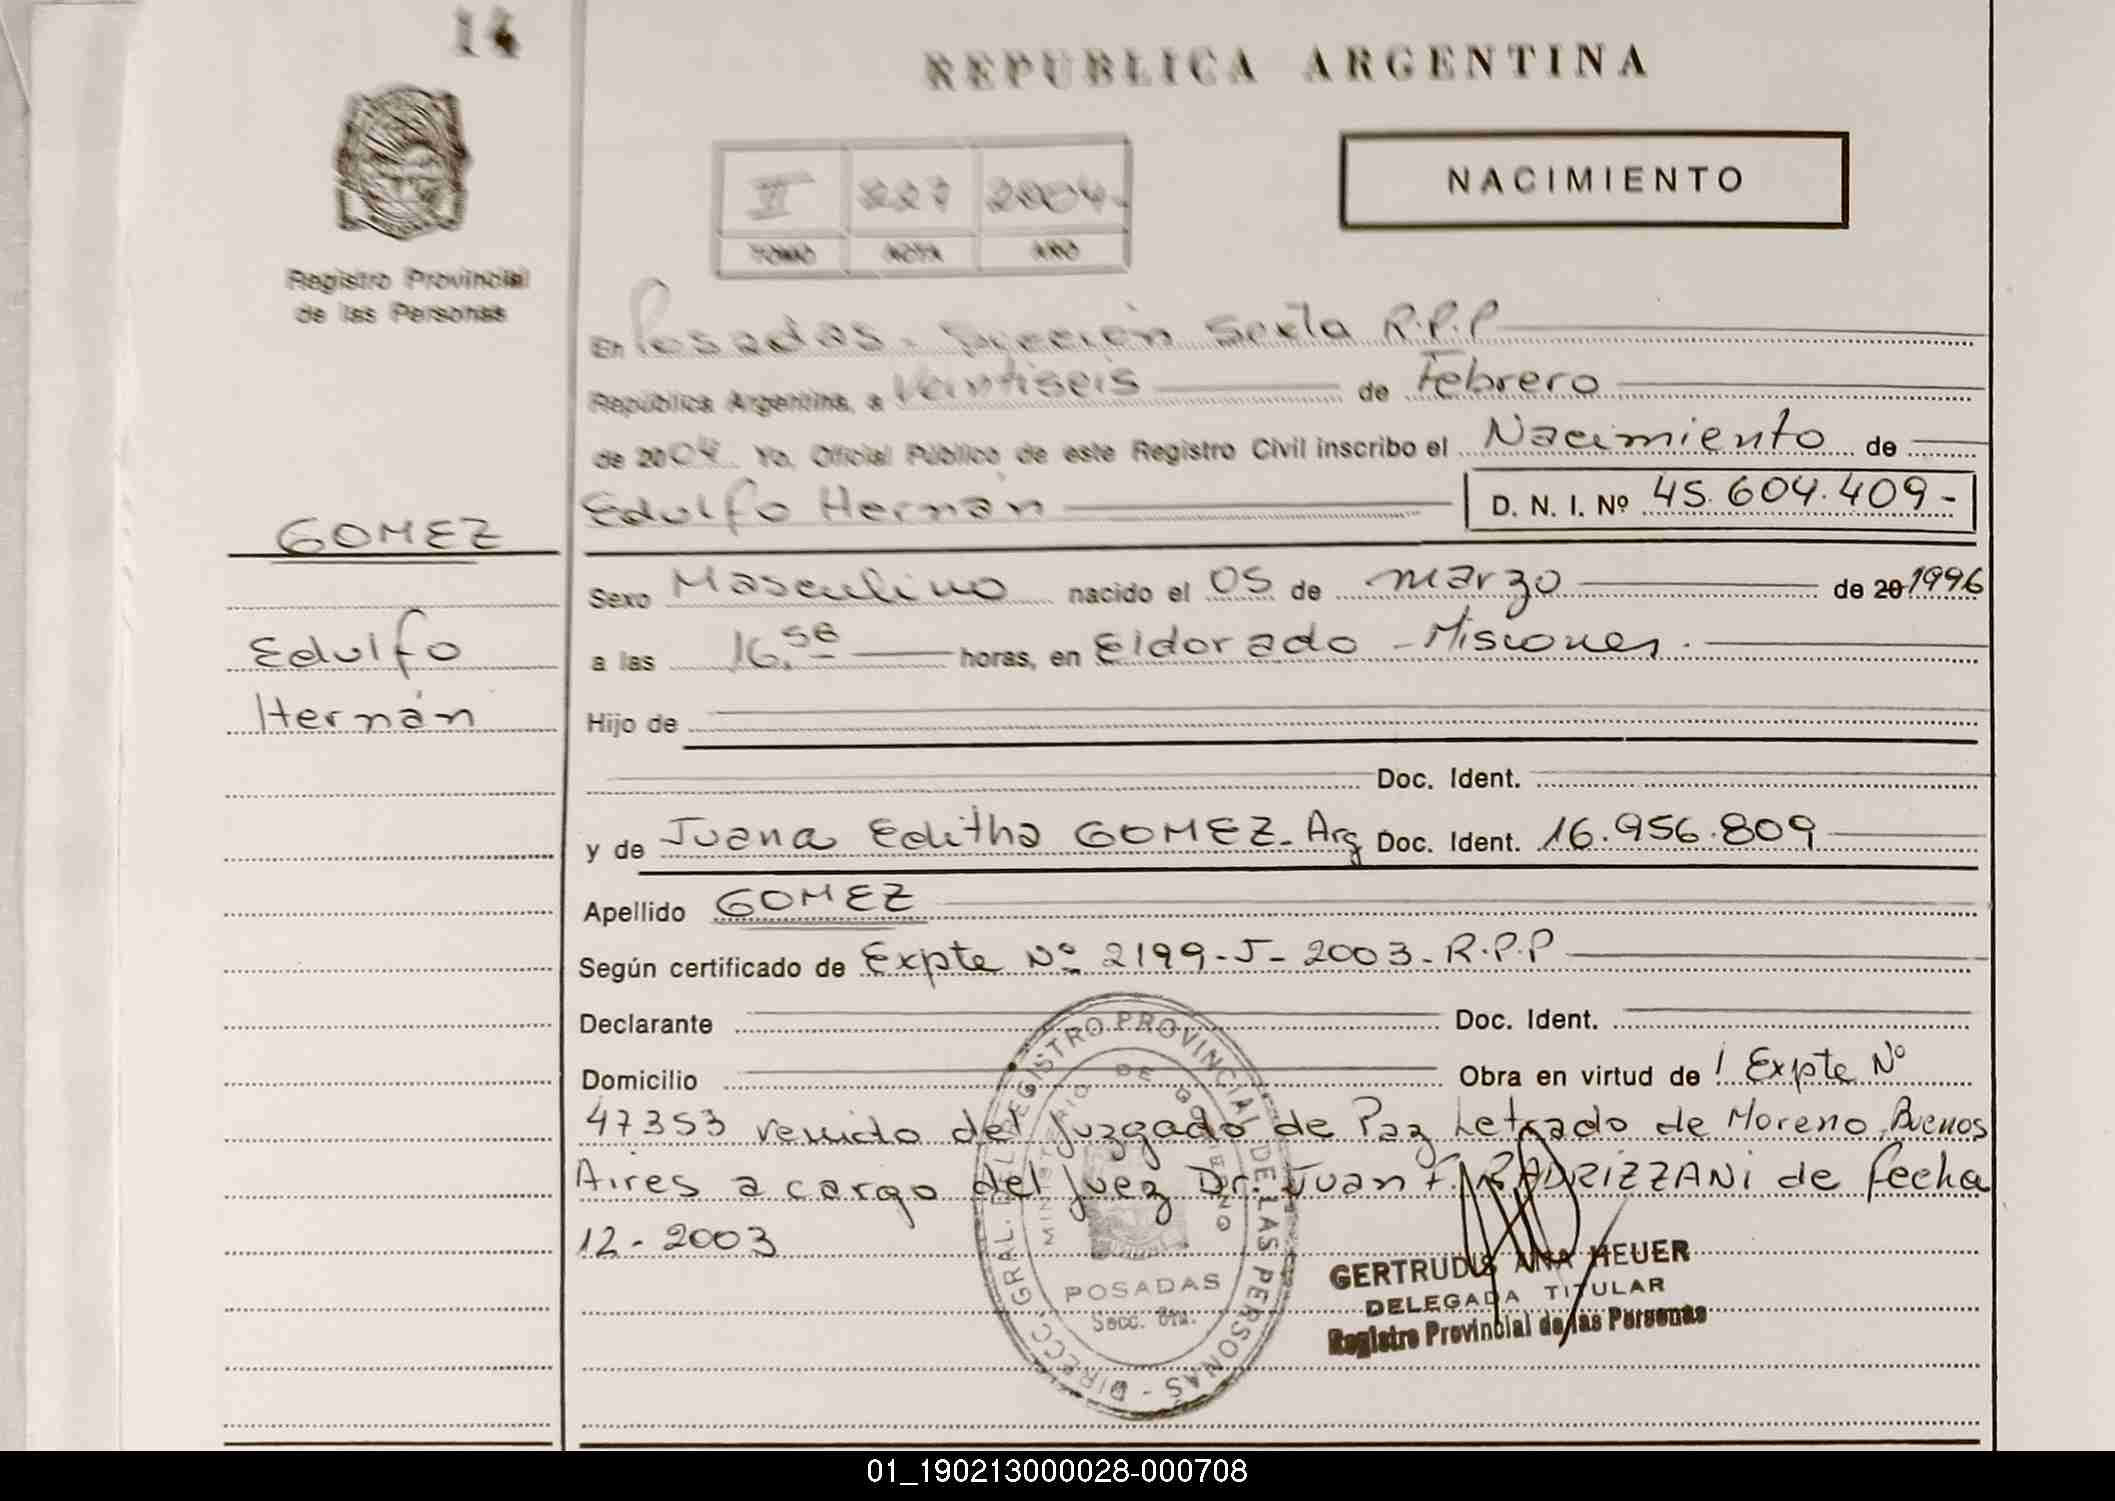 14
REPUBLICA ARGENTINA
II 227 2004-
TOMO ACTA AÑO
NACIMIENTO
Registro Provincial
de las Personas
En Posadas - Sección Sexta R.P.P
República Argentina, a Veintiseis de Febrero
de 2004 Yo, Oficial Público de este Registro Civil inscribo el Nacimiento de
Edulfo Hernán D. N. I. Nº 45.604.409-
GOMEZ
Edulfo
Hernán
Sexo Masculino nacido el 05 de marzo de 20 1996
a las 16.56 horas, en Eldorado - Misiones.
Hijo de
Doc. Ident.
y de Juana Editha GOMEZ - Arg Doc. Ident. 16.956.809
Apellido GOMEZ
Según certificado de Expte Nº 2199-J-2003-R.P.P
Declarante Doc. Ident.
Domicilio Obra en virtud de Expte Nº
47353 venido del Juzgado de Paz Letrado de Moreno, Buenos
Aires a cargo del Juez Dr. Juan F. RADRIZZANI de fecha
12-2003
DIRECC. GRAL. DEL REGISTRO PROVINCIAL DE LAS PERSONAS -
MINISTERIO DE GOBIERNO
POSADAS
Secc. 6ta.
GERTRUDIS ANA HEUER
DELEGADA TITULAR
Registro Provincial de las Personas
01_190213000028-000708